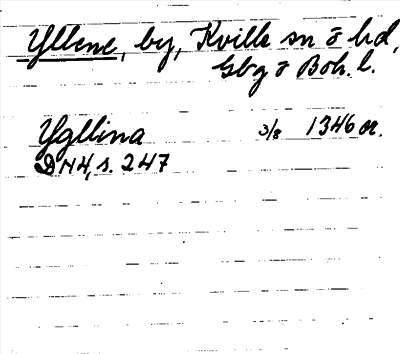 Yllene, by, Kville sn o hd,
Gbg o Boh. l.
Ygllina 3/8 1346 or.
DN 4, s. 247